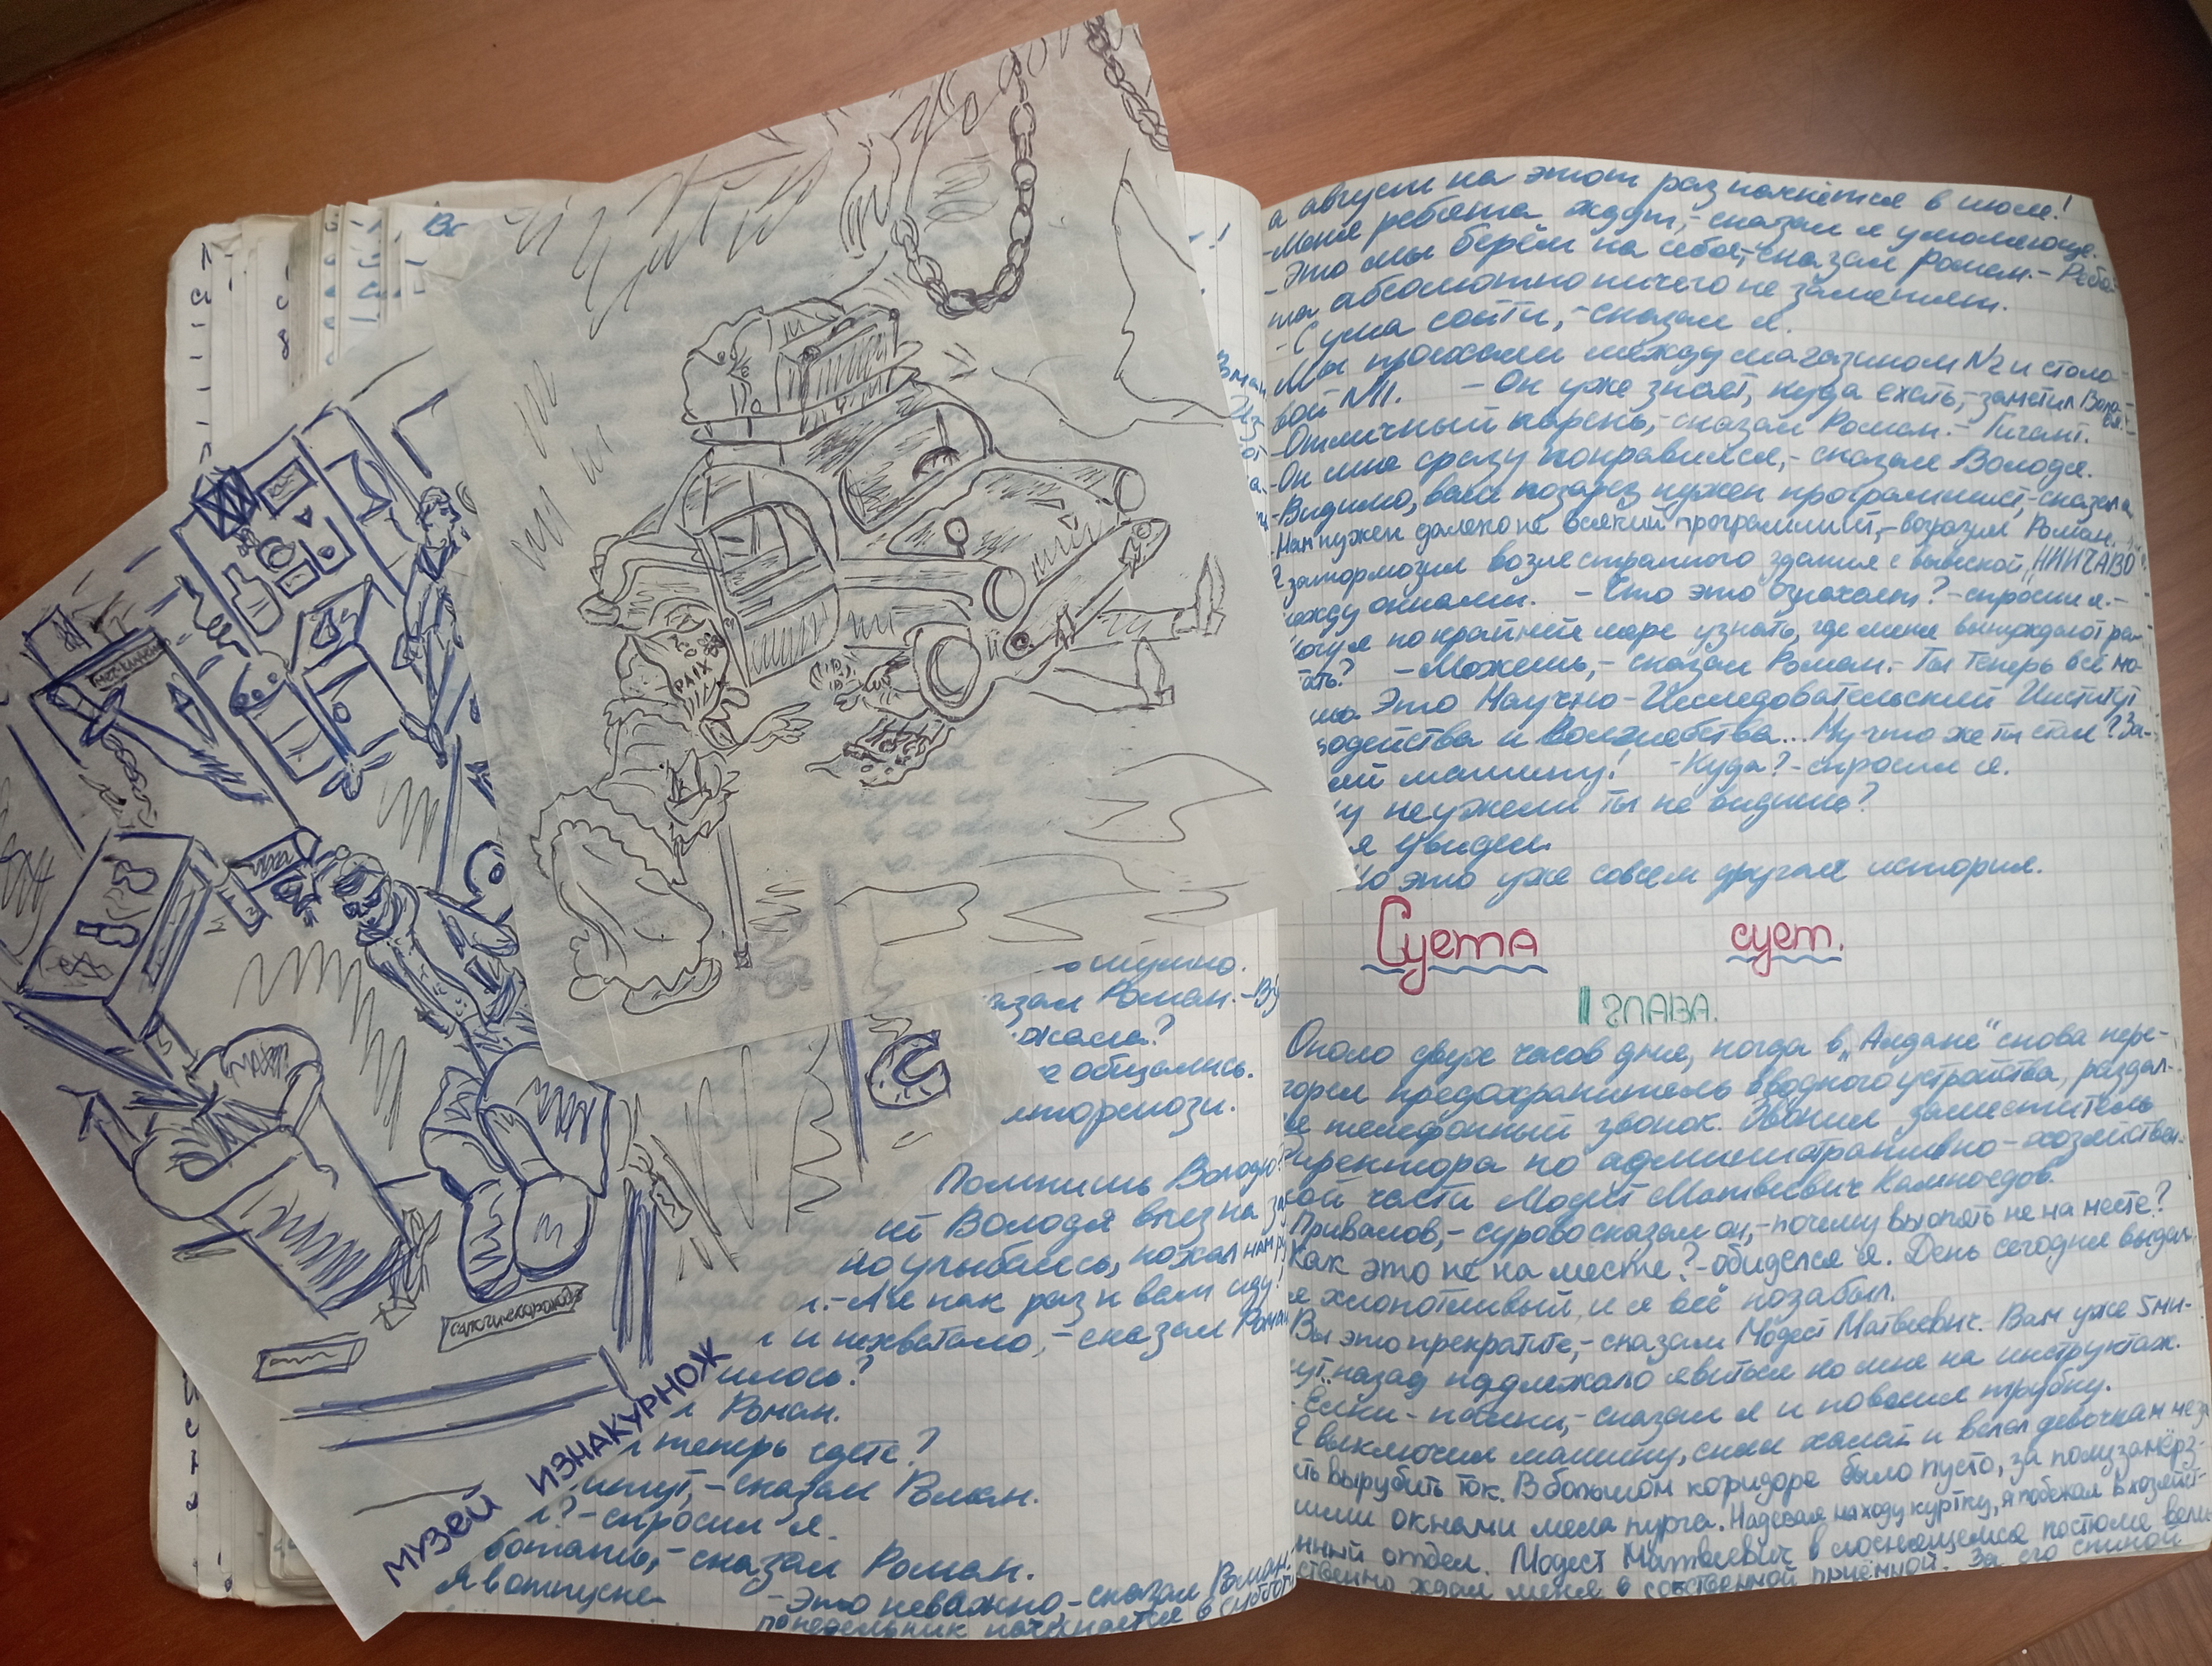 МУЗЕЙ ИЗНАКУРНОЖ
РАІХ
сапоги-скороходы
Вс
шумно.
сказал Роман. - Ву
жала?
е общались.
притормози.
Помнишь Володю?
Володя влез на за
но улыбаясь, пожал нам ру
- А я как раз к вам иду!
и нехватало, - сказал Роман
илось?
Роман.
теперь едете?
инут, - сказал Роман.
? - спросил я.
ботать, - сказал Роман.
Я в отпуске.
- Это неважно, - сказал Роман.
понедельник начинается в субботу
а август на этот раз начнётся в июле!
- Меня ребята ждут, - сказал я умоляюще.
- Это мы берём на себя, - сказал Роман. - Ребя-
та абсолютно ничего не заметят.
- С ума сойти, - сказал я.
Мы проехали между магазином №2 и столо-
вой №11. - Он уже знает, куда ехать, - заметил Воло-
дя.
- Отличный парень, - сказал Роман. - Гигант.
- Он мне сразу понравился, - сказал Володя.
- Видимо, вам позарез нужен программист, - сказал я
- Нам нужен далеко не всякий программист, - возразил Роман.
Я затормозил возле странного здания с вывеской „НИИЧАВО"
между окнами. - Что это означает? - спросил я. -
Могу я по крайней мере узнать, где меня вынуждают ра-
тать? - Можешь, - сказал Роман. - Ты теперь всё мо-
Это Научно-Исследовательский Институт
одейства и Волшебства... Ну что же ты стал? За-
яй машину! - Куда? - спросил я.
Ну неужели ты не видишь?
я увидел.
Но это уже совсем другая история.
Суета сует.
1 глава.
Около двух часов дня, когда в „Алдане" снова пере-
горел предохранитель вводного устройства, раздал-
ся телефонный звонок. Звонил заместитель
директора по административно-хозяйствен-
ной части Модест Матвеевич Камноедов.
Привалов, - сурово сказал он, - почему вы опять не на месте?
Как это не на месте? - обиделся я. День сегодня выдал
ся хлопотливый, и я всё позабыл.
Вы это прекратите, - сказал Модест Матвеевич. Вам уже 5 ми-
нут назад надлежало явиться ко мне на инструктаж.
- Ёлки-палки, - сказал я и повесил трубку.
Я выключил машину, снял халат и велел девочкам не за
ть вырубить ток. В большом коридоре было пусто, за полузамёрз-
шими окнами мела пурга. Надевая на ходу куртку, я побежал в хозяйст-
нный отдел. Модест Матвеевич в лоснящемся костюме вели
ственно ждал меня в собственной приёмной. За его спиной